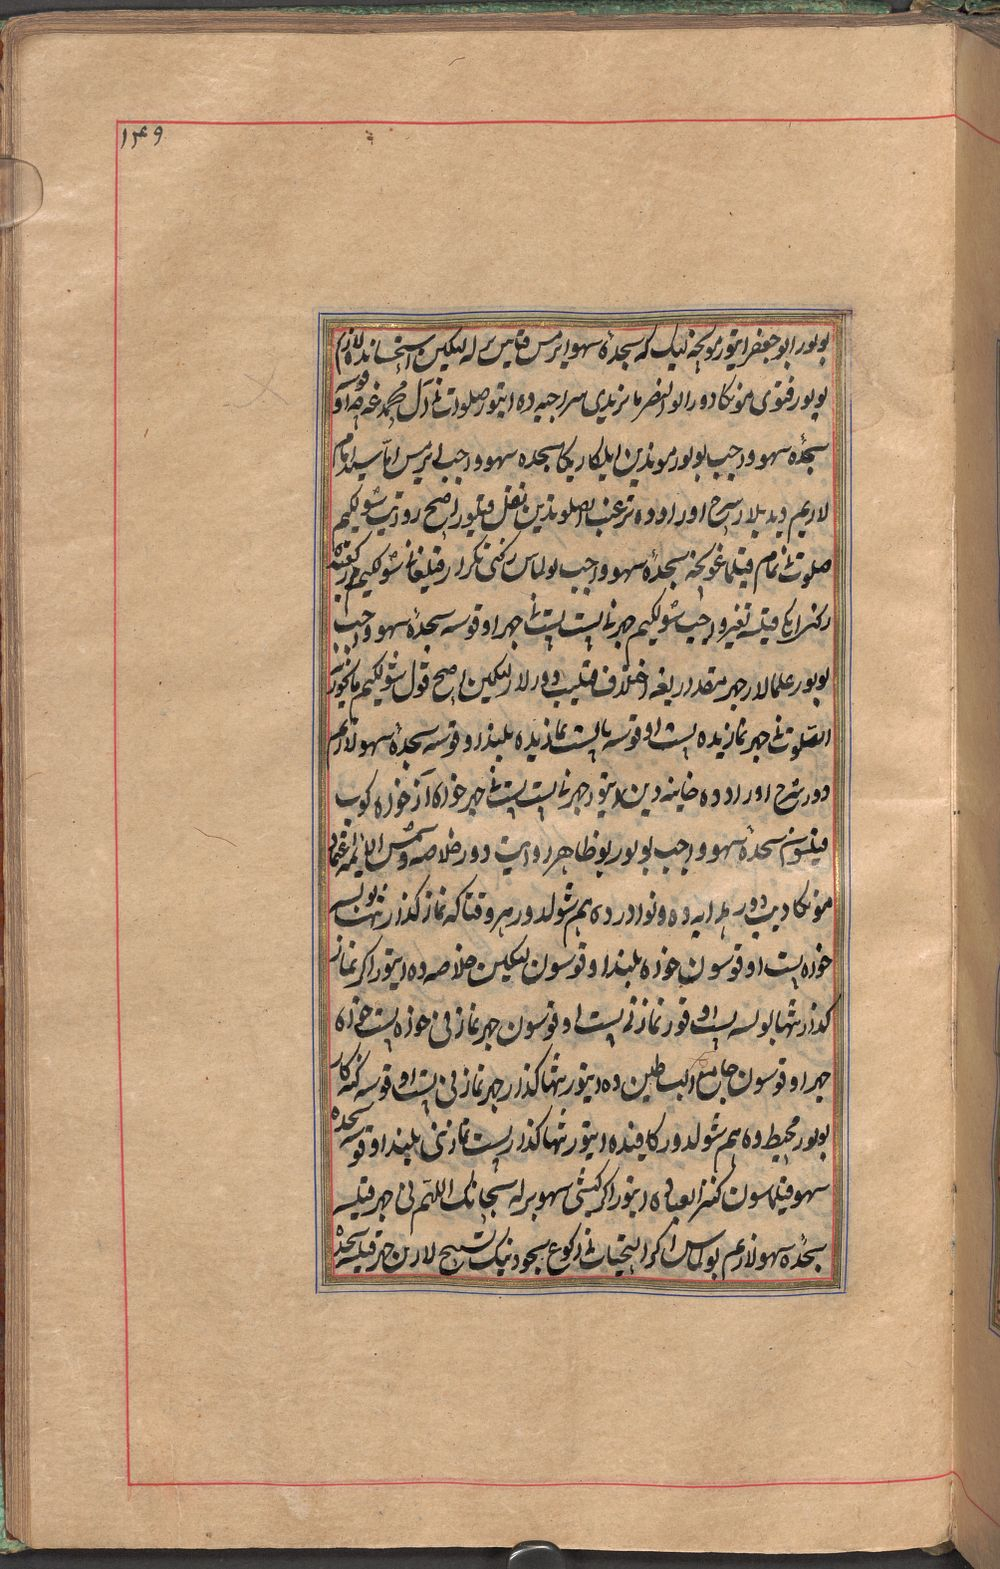 ۱۴۹
بولور ابو جعفر ایتور مونچه لیک که سجدهٔ سهو ایرمس قیاس بیرله لیکین استحسانده لازم
بولور فتوی مونکا دور ابو النصر ماتریدی سراجیه ده ایتور صلوات نی آل محمد غه
سجدهٔ سهو واجب بولور موندین ایلکاریکا سجده سهو واجب ایرمس اما سید امام
لازم دیدیلار شرح اوراد ده ترغیب الصلوتدین نقل قیلور اصح روایت شولکیم
صلوت نی تمام قیلماغونچه سجدهٔ سهو واجب بولماس رکنی تکرار قیلغانی شولکیم
رکنرا یکی قیلسه تغیر واجب شولکیم جهرنی پست پست نی جهر اوقوسه سجدهٔ سهو واجب
بولور علمالار جهر مقداریغه اختلاف قیلیب دورلار لیکین اصح قول شولکیم
الصلوت نی جهر نمازیده پست اوقوسه یا پست نمازیده بلند اوقوسه سجدهٔ سهو لازم
دور شرح اوراد ده خانیه دین ایتور جهرنی پست پست نی جهر خواه آز خواه کوب
قیلسون سجدهٔ سهو واجب بولور بو ظاهر روایت دور خلاصه و شمس الائمه
مونکا دیب دور هدایه ده و نوادر ده هم شولدور هر وقتا که نماز گذار تنها بولسه
خواه پست اوقوسون خواه بلند اوقوسون لیکین خلاصه ده ایتور اکر نماز
گذار تنها بولسه پست اوقور نمازنی پست اوقوسون جهر نمازنی خواه پست خواه
جهر اوقوسون جامع البساطین ده ایتور تنها گذار جهر نمازنی پست اوقوسه گنه کار
بولور محیط ده هم شولدور کافیده ایتور تنها گذار پست نمازنی بلند اوقوسه سجده
سهو قیلماسون کنز العباد ده ایتور اکر کیشی سهو بیرله سبحانک اللهم نی جهر قیلسه
سجدهٔ سهو لازم بولماس اکر التحیات نی رکوع سجود نینک تسبیح لارین جهر قیلسه سجدهٔ